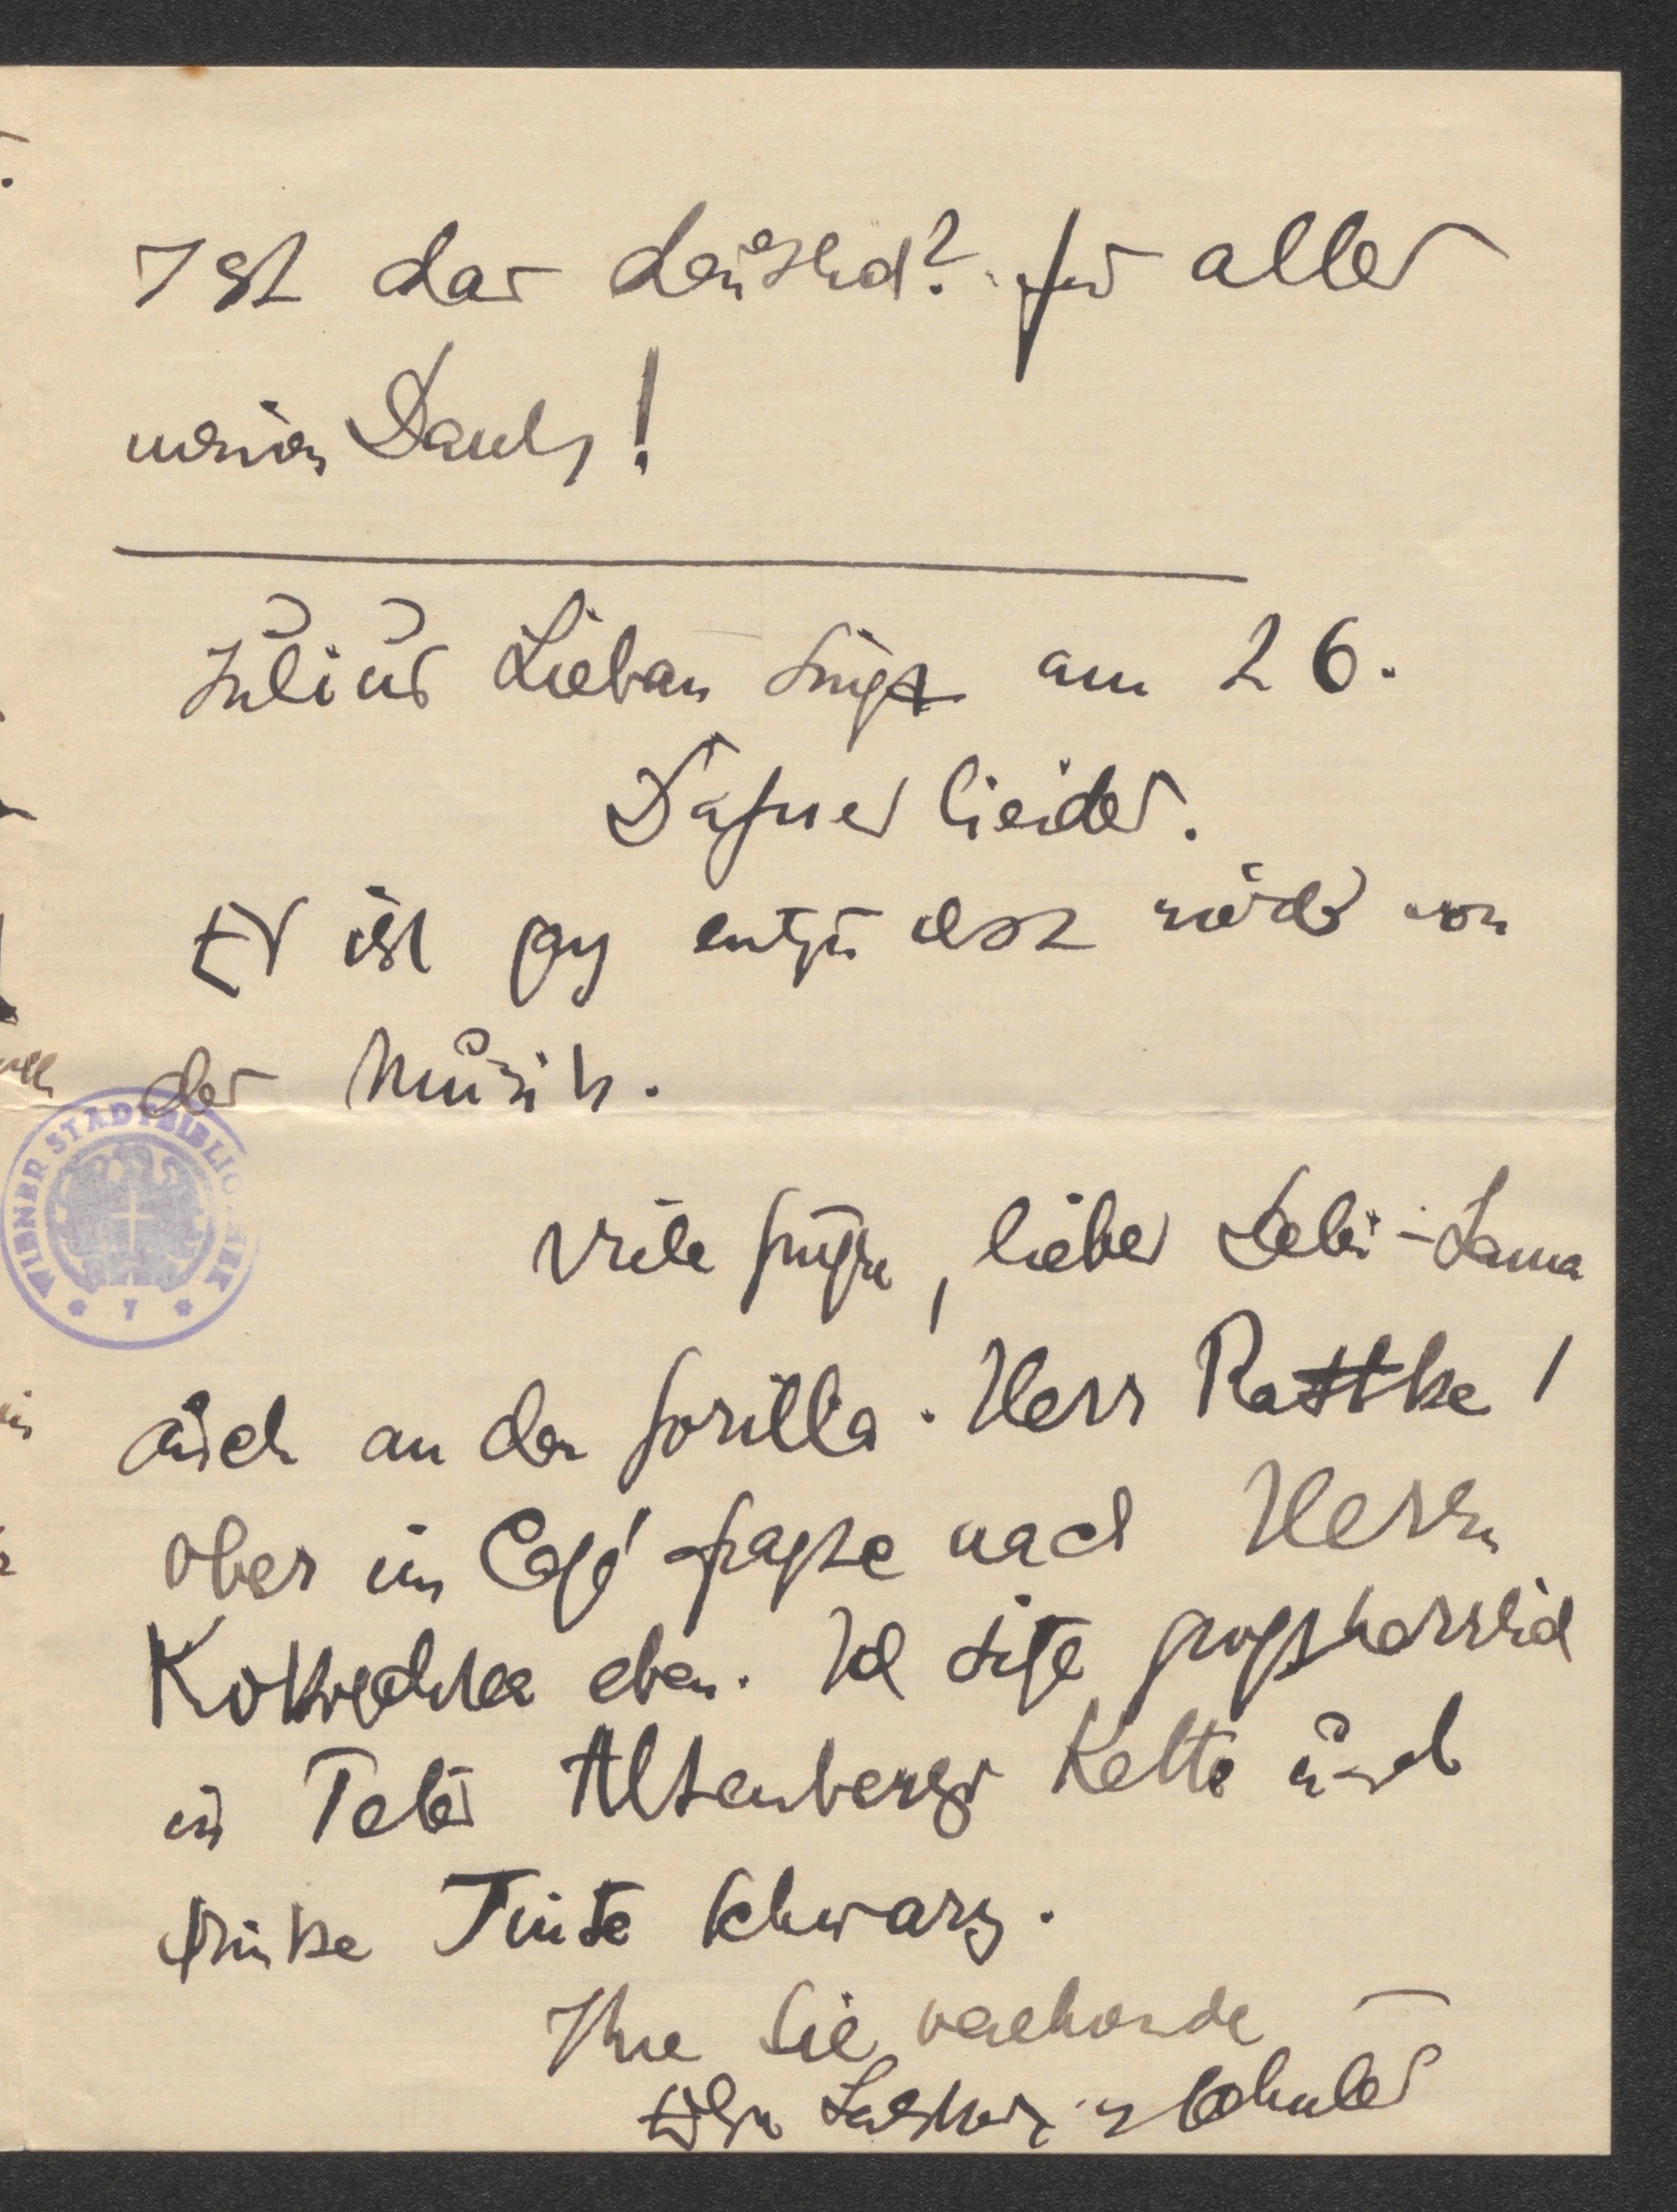 Ist das deutsch? für alles
meinen Dank!
Julius Lieban singt am 26.
Dafnislieder.
Er ist ganz entzückt von
der Musik.
Viele Grüße, lieber Dalai-Lama
auch an den Gorilla. Herr Rattke!
Ober im Café fragte nach Herrn
eben. Ich sitze großherrlich
in Peter Altenbergs Kette und
trinke Tinte schwarz.
Ihre Sie verehrende
Else Lasker-Schüler
WIENER STADTBIBLIOTHEK
* 7 *